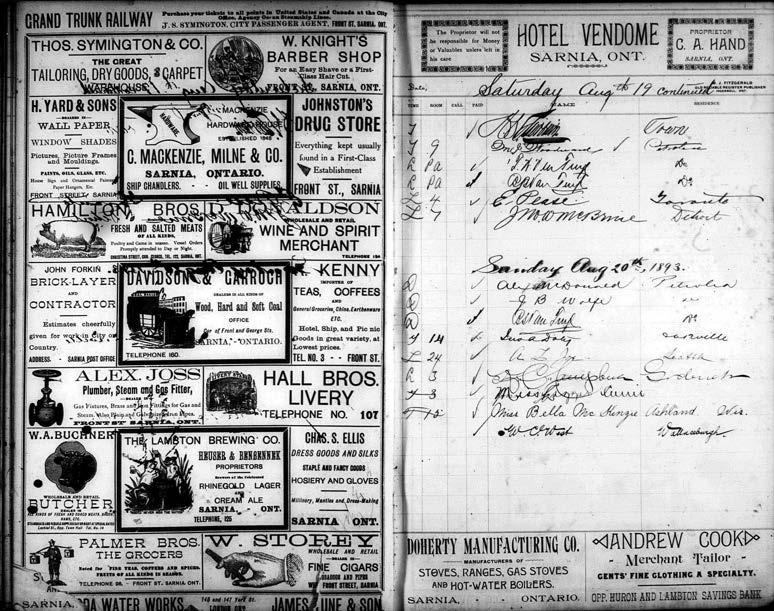 GRAND TRUNK RAILWAY
Purchase your tickets to all points in United States and Canada at the City
Office, Agency Ocean Steamship Lines.
J. S. SYMINGTON, CITY PASSENGER AGENT, FRONT ST, SARNIA, ONT.
THOS. SYMINGTON & CO.
THE GREAT
TAILORING, DRY GOODS, & CARPET
WAREHOUSE
W. KNIGHT'S
BARBER SHOP
For an Easy Shave or a First-
Class Hair Cut.
FRONT ST., SARNIA, ONT.
H. YARD & SONS
DEALERS IN
WALL PAPER
WINDOW SHADES
Pictures, Picture Frames
and Mouldings.
PAINTS, OIL, GLASS, ETC.
House Sign and Ornamental Painters
Paper Hangers, Etc.
FRONT STREET, SARNIA
MACKENZIE
HARDWARE HOUSE
ESTABLISHED 1848
C. MACKENZIE, MILNE & CO.
SARNIA, ONTARIO.
SHIP CHANDLERS. OIL WELL SUPPLIES
JOHNSTON'S
DRUG STORE
Everything kept usually
found in a First-Class
Establishment
FRONT ST., SARNIA
HAMILTON BROS.
FRESH AND SALTED MEATS
OF ALL KINDS,
Poultry and Game in season. Vessel Orders
Promptly attended to Day or Night.
D. DONALDSON
WHOLESALE AND RETAIL
WINE AND SPIRIT
MERCHANT
JOHN FORKIN
BRICK-LAYER
AND
CONTRACTOR
Estimates cheerfully
given for work in City or
Country.
ADDRESS. - SARNIA POST OFFICE
DAVIDSON & GATROCH
DEALERS IN ALL KINDS OF
Wood, Hard and Soft Coal
OFFICE
Cor of Front and George Sts.
SARNIA, - ONTARIO.
TELEPHONE 160.
KENNY
IMPORTER OF
TEAS, COFFEES
AND
General Groceries, China, Earthenware
ETC.
Hotel, Ship, and Pic nic
Goods in great variety, at
Lowest prices.
TEL. NO. 3 - - FRONT ST.
ALEX. JOSS
Plumber, Steam and Gas Fitter,
DEALER IN
FRONT ST SARNIA, ONT.
HALL BROS.
LIVERY
TELEPHONE NO. 107
W. A. BUCHNER
WHOLESALE AND RETAIL
BUTCHER
THE LAMBTON BREWING CO.
PROPRIETORS
Brewers of the Celebrated
RHINEGOLD LAGER
AND
CREAM ALE
SARNIA, ONT.
TELEPHONE, 125
CHAS. S. ELLIS
DRESS GOODS AND SILKS
STAPLE AND FANCY GOODS
HOSIERY AND GLOVES
Millinery, Mantles and Dress-Making
SARNIA ONT.
PALMER BROS.
THE GROCERS
Noted for FINE TEAS, COFFEES AND SPICES.
FRUITS OF ALL KINDS IN SEASON.
W. STOREY
WHOLESALE AND RETAIL
DEALER IN
FINE CIGARS
TOBACCOS AND PIPES
FRONT STREET, SARNIA
SARNIA,
WATER WORKS
JAMES
& SON
The Proprietor will not
be responsible for Money
or Valuables unless left in
his care
HOTEL VENDOME
SARNIA, ONT.
PROPRIETOR
C. A. HAND
SARNIA, ONT.
Saturday Augth 19 continued
TIME ROOM CALL PAID NAME RESIDENCE
Town
T 9
L Pa
L Pa
L 4 E Pease Toronto
L 7 Detroit
Sunday Aug 20th, 1893.
D Alex McDonald Petrolea
D J B Wolfe
D
4 14
L 24
L 3 Goderich
4 3 Miss
T 15 Miss Bella McKenzie Ashland Wis.
W. C. West Wallaceburgh.
DOHERTY MANUFACTURING CO.
MANUFACTURERS OF
STOVES, RANGES, GAS STOVES
AND HOT-WATER BOILERS.
SARNIA, - - ONTARIO.
ANDREW COOK
Merchant Tailor
GENTS' FINE CLOTHING A SPECIALTY.
OPP. HURON AND LAMBTON SAVINGS BANK